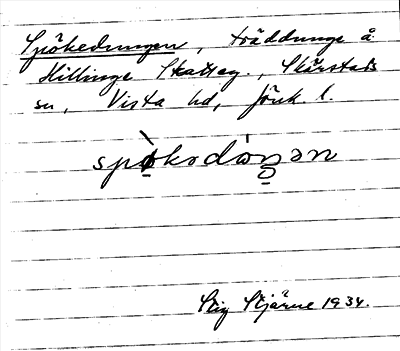 Spökedungen, träddunge å
Hillinge Skatteg., Skärstads
sn, Vista hd, Jönk. l.
spökədàŋən
Stig Stjärne 1934.